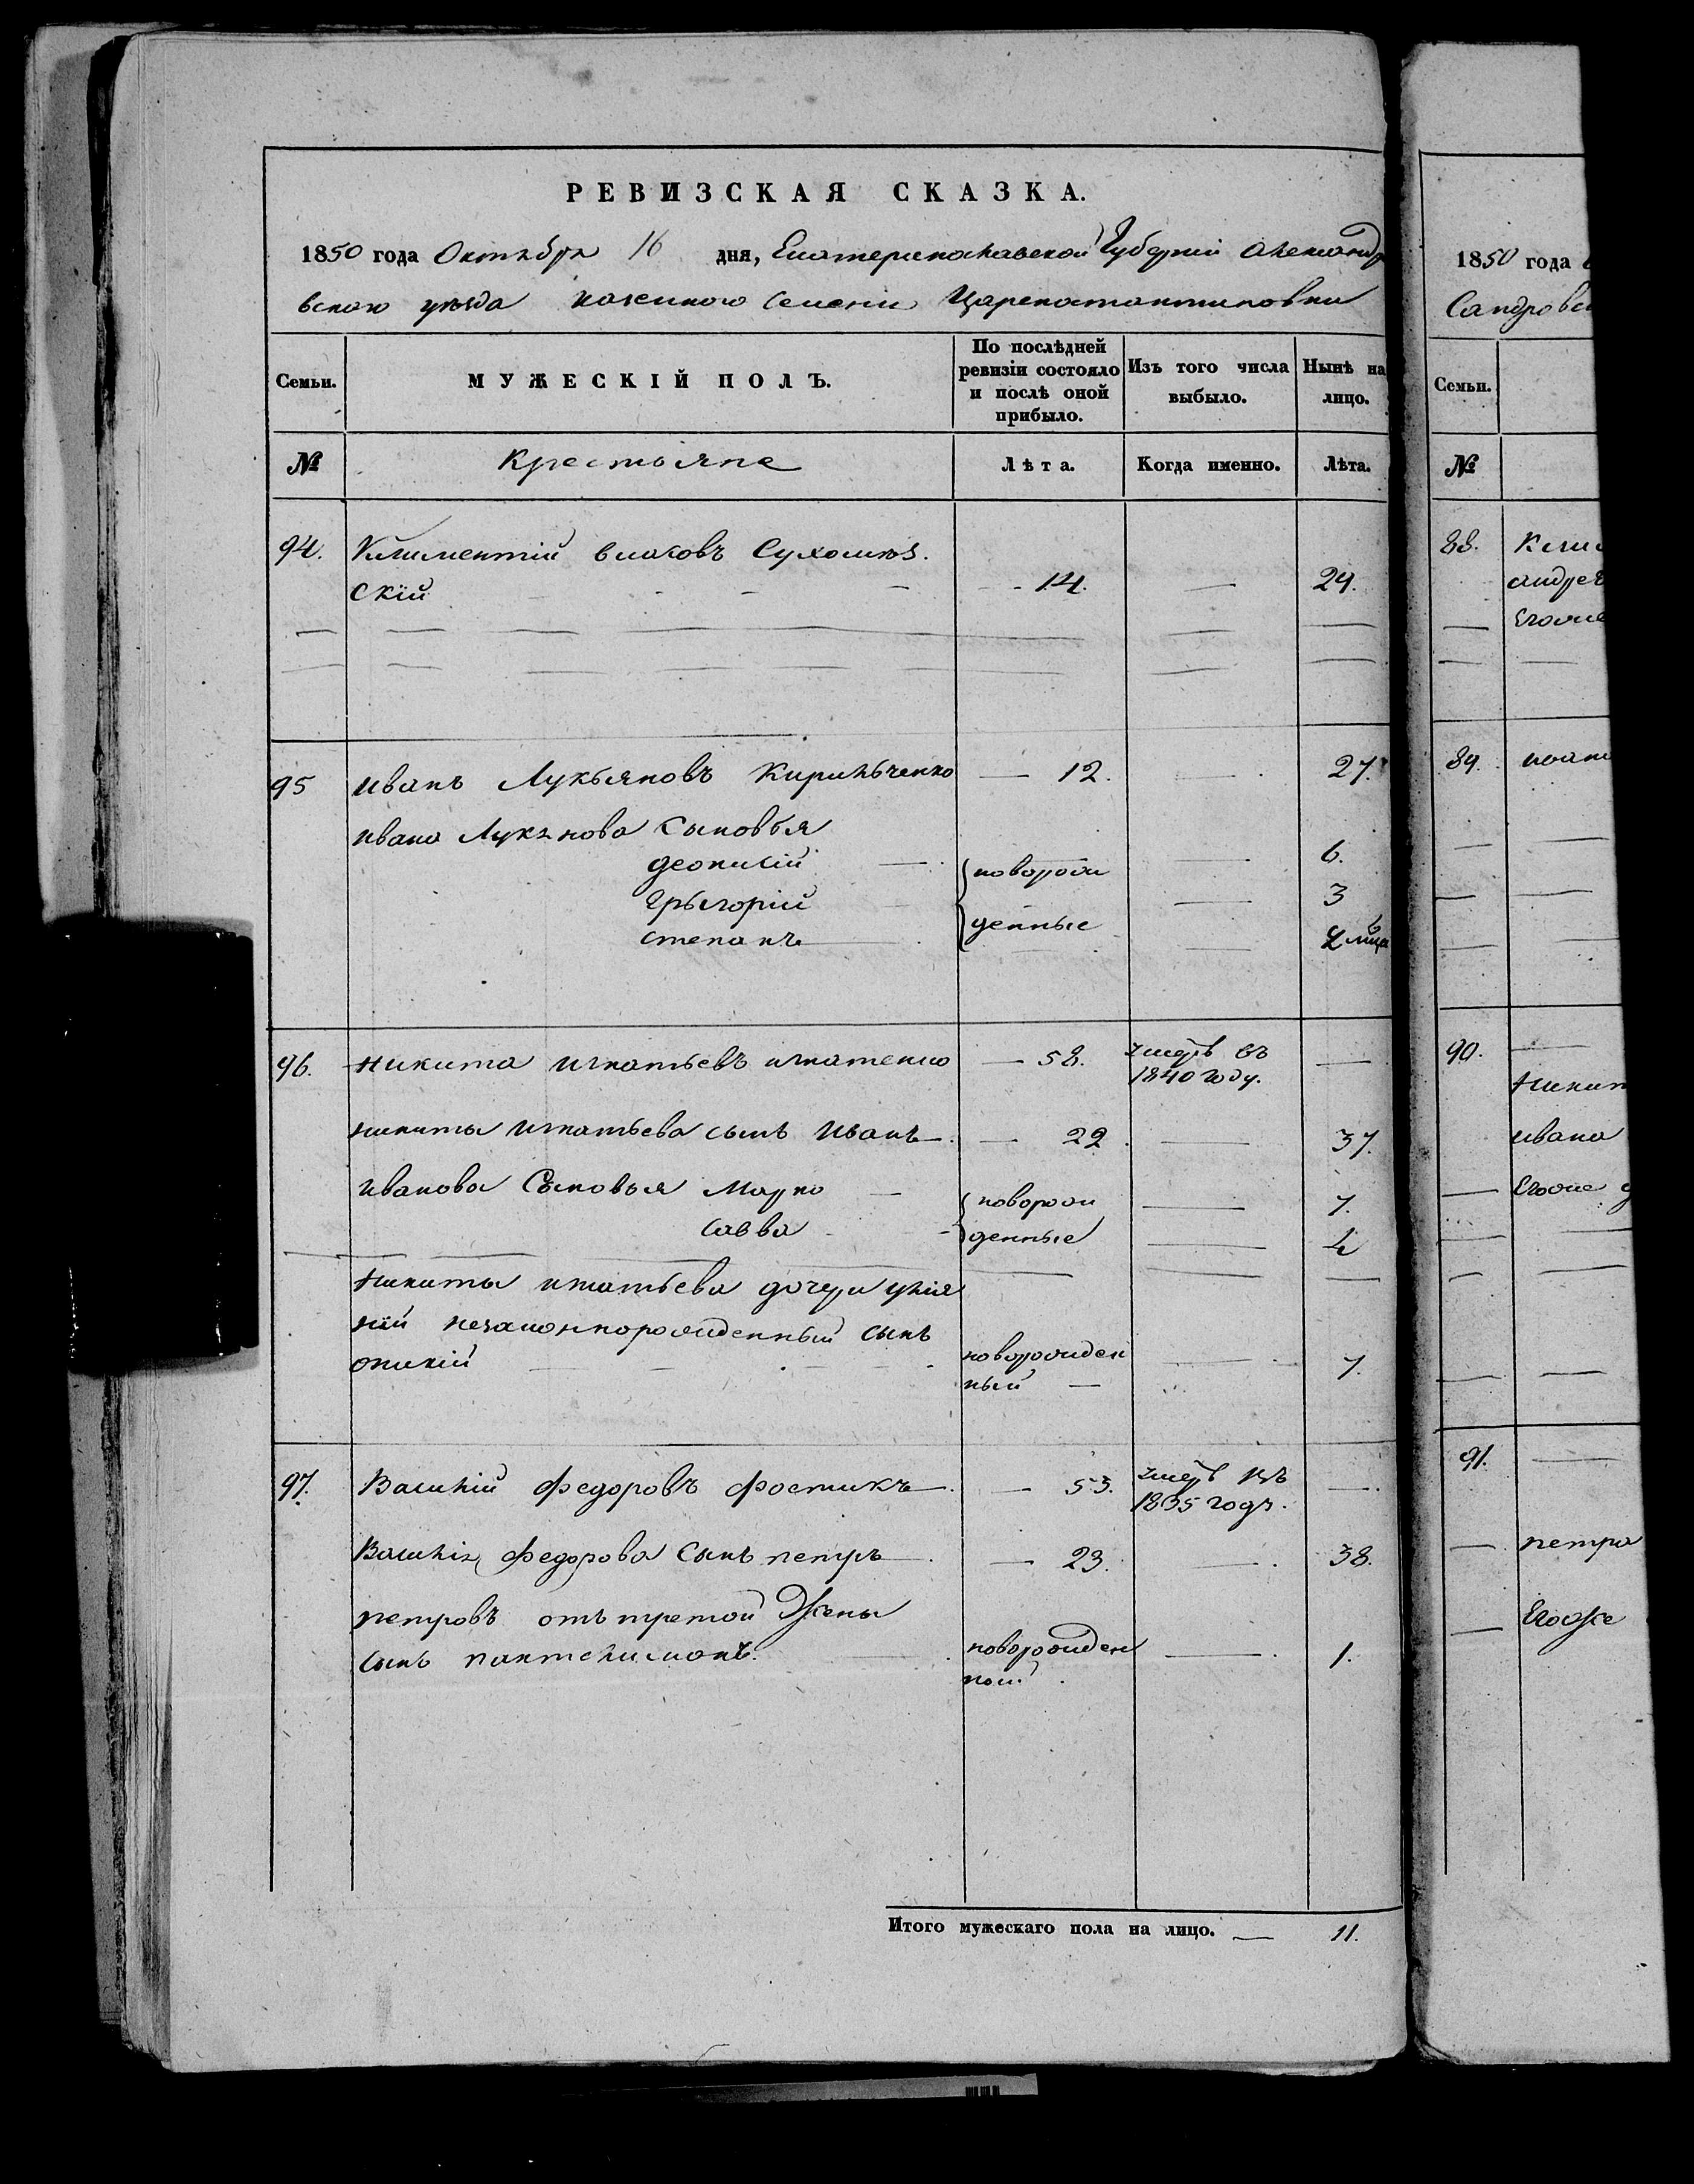 РЕВИЗСКАЯ СКАЗКА.
1850 года Октября 16 дня, Екатеринославской Губерніи Александро
вскаго уѣзда казеннаго Селенія Цареконстантиновки
Семьи.
МУЖЕСКІЙ ПОЛЪ.
По послѣдней ревизіи состояло и послѣ оной прибыло.
Изъ того числа выбыло.
Нынѣ на лицо.
№ Крестьяне Лѣта. Когда именно. Лѣта.
94. Климентій Власовъ Сухомлин
скій - 14. — 29.
95 Иванъ Лукьяновъ Кирильченко — 12. — 27.
Ивана Лукянова Сыновья
Деонисій — новорож — 6.
Грыгорій — 3
Степанъ денные —
96. Никита Игнатьевъ Игнатенко — 58. умеръ въ 1840 году. —
Никиты Игнатьева сынъ Иванъ — 22. — 37.
Иванова Сыновья Марко — новорож — 7.
Савва денные — 4
Никиты Игнатьева дочери
незаконнорожденный сынъ
новорожден — 7.
ный —
97. Василій Федоровъ Фостикъ — 53. умеръ въ 1835 годъ. —
Василія Федорова Сынъ Петръ — 23. — 38.
Петровъ отъ третой Жены
сынъ Пантелимонъ. новорожден — 1.
ной.
Итого мужескаго пола на лицо. — 11.
1850 года
Сандровс
Семьи.
№
88. Кли
андрея
Егоже
89. Иван
90. —
Никит
Ивана
— Егоже
91. —
— Петра
— Егоже